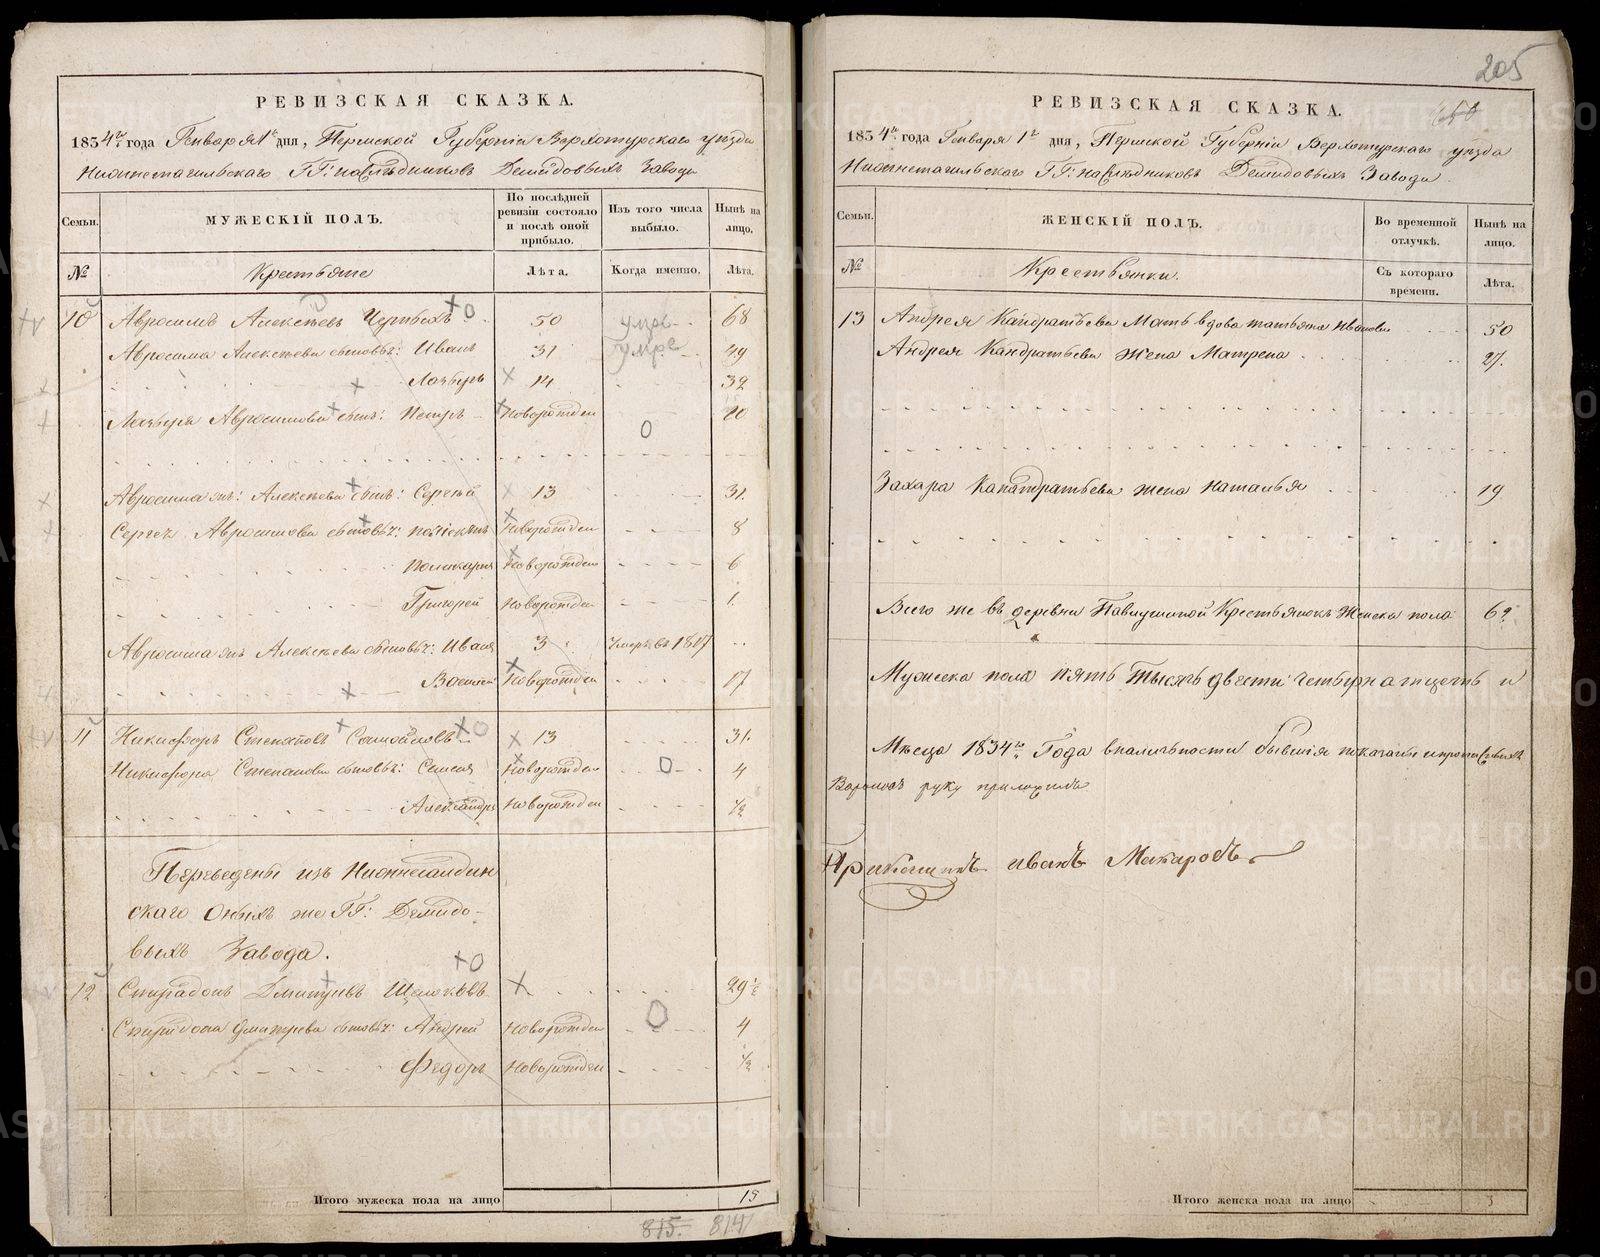 РЕВИЗСКАЯ СКАЗКА.
1834го года Генваря 1го дня, Пермской Губерніи Верхотурскаго уѣзда
Нижнетагильскаго ГГ: наслѣдниковъ Демидовыхъ Завода
Семьи.
МУЖЕСКІЙ ПОЛЪ.
По послѣдней ревизіи состояло и послѣ оной прибыло.
Изъ того числа выбыло.
Нынѣ на лицо.
№
Крестьяне
Лѣта.
Когда именно.
Лѣта.
10 Авросимъ Алексѣевъ Черныхъ 50 умре 68
Авросима Алексѣева сыновья: Иванъ 31 умре 49
Лазарь 14 32
Лазаря Авросимова сынъ: Петръ Новорожден 20
0
Авросима Алексѣева сынъ: Сергѣй 13 31.
Сергея Авросимова сыновья: Новорожден 8
Поликарпъ Новорожден 6
Григорей Новорожден 1.
Авросима Алексѣева сыновья: Иванъ 3 Умеръ въ 1817
Василей Новорожден 17
11 Никифоръ Степановъ Самойловъ 13 31.
Никифора Степанова сыновья: Новорожден 0 4
Александръ Новорожден ½
Переведены изъ Нижнесалдин
скаго Оныхъ же ГГ: Демидо-
выхъ Завода.
12 Спиридонъ Дмитріевъ 29½
Спиридона Дмитріева сыновья: Андрей Новорожден 0 4
Федоръ Новорожден ½
Итого мужеска пола на лицо 15
815. 814
205
РЕВИЗСКАЯ СКАЗКА.
1834го года Генваря 1го дня, Пермской Губерніи Верхотурскаго уѣзда
Нижнетагильскаго ГГ: наслѣдниковъ Демидовыхъ Завода
Семьи.
ЖЕНСКІЙ ПОЛЪ.
Во временной отлучкѣ.
Нынѣ на лицо.
№
Крестьянки.
Съ котораго времени.
Лѣта.
13 Андрея Кандратьева Мать вдова Татьяна Иванова 50
Андрея Кандратьева жена Матрена 27.
Захара Кандратьева жена Наталья 19
Всего же въ деревни Павлушиной Крестьянокъ Женска пола 62
Мужеска пола пять Тысячь двести четырнатцеть и
Мѣсца 1834го Года
руку приложилъ
Прикащикъ Иванъ Макаровъ
Итого женска пола на лицо 3